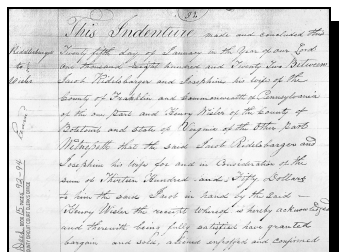 This Indenture made and concluded this
Twenty fifth day of January in the Year of our Lord
one thousand Eight hundred and Twenty Two Between
Jacob Ridelsbarger and Josephine his wife of the
County of Franklin and Commonwealth of Pennsylvania
of the one part and Henry Wisler of the County of
Botetourt and State of Virginia of the other part
Witnesseth that the said Jacob Ridelsbarger and
Josephine his wife for and in Consideration of the
sum of Thirteen Hundred and Fifty Dollars
to him the said Jacob in hand by the said
Henry Wisler the receipt whereof is hereby acknowledged
and therewith being fully satisfied have granted
bargain and sold, aliened enfeoffed and confirmed
Ridelsbarger
to